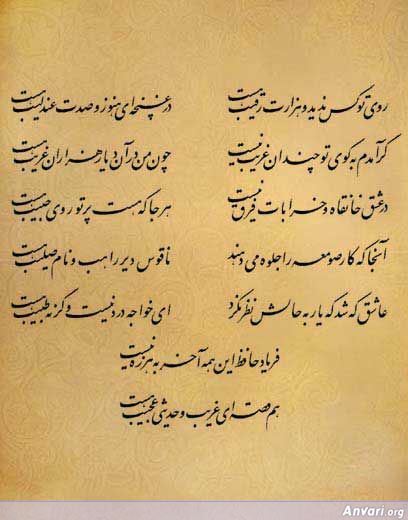 روی تو کس ندید و هزارت رقیب هست در غنچه‌ای هنوز و صدت عندلیب هست
گر آمدم به کوی تو چندان غریب نیست چون من در آن دیار هزاران غریب هست
در عشق خانقاه و خرابات فرق نیست هر جا که هست پرتو روی حبیب هست
آنجا که کار صومعه را جلوه می‌دهند ناقوس دیر راهب و نام صلیب هست
عاشق که شد که یار به حالش نظر نکرد ای خواجه درد نیست وگرنه طبیب هست
فریاد حافظ این همه آخر به هرزه نیست
هم قصه‌ای غریب و حدیثی عجیب هست
Anvari.org